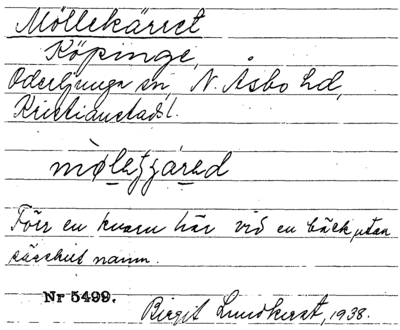 Möllekärret
Köpinge,
Oderljunga sn, N. Åsbo hd,
Kristianstads l.
Förr en kvarn här vid en bäck utan
särskilt namn.
Nr 5499.
Birgit Lundkvist, 1938.